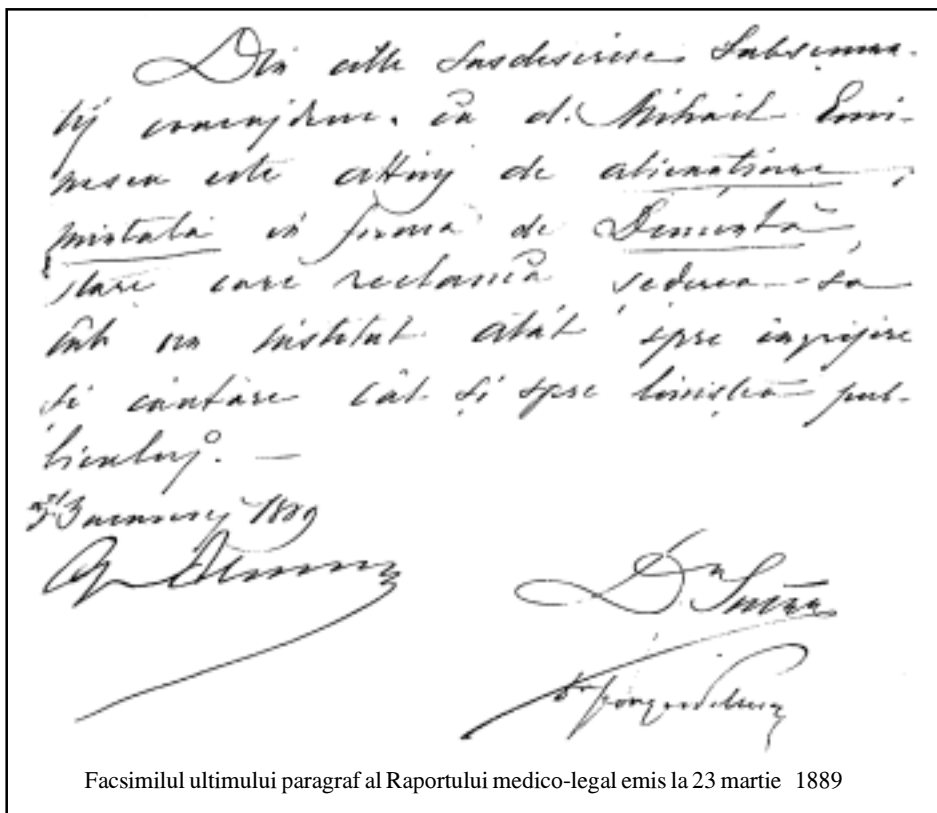 Din celle susdescrise subsemna-
ții conchidem, că d. Mihail Emi-
nescu este attins de alienațiune
mintală în formă de Demență,
stare care reclamă șederea sa
într un institut atât spre îngrijire
și căutare cât și spre liniștea pub-
licului. —
1889
Dr Suțu
Dr
Facsimilul ultimului paragraf al Raportului medico-legal emis la 23 martie 1889